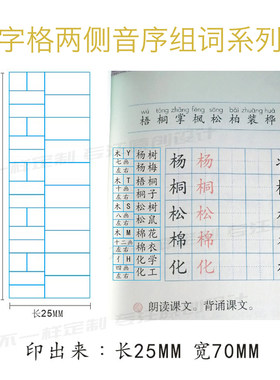 字格两侧音序组词系列
wú tóng zhǎng fēng sōng bǎi
梧 桐 掌 枫 松 柏 装 桦
木 Y 杨树
七画 杨梅
左右
木 T 梧桐
十画 桐子
左右
木 S 松树
八画 松鼠
左右
木 M 棉花
十二画 棉衣
左右
亻 H 化学
四画 化工
左右
杨 杨
桐 桐
松 松
棉 棉
化 化
朗读课文。背诵课文。
长25MM
印出来：长25MM 宽70MM